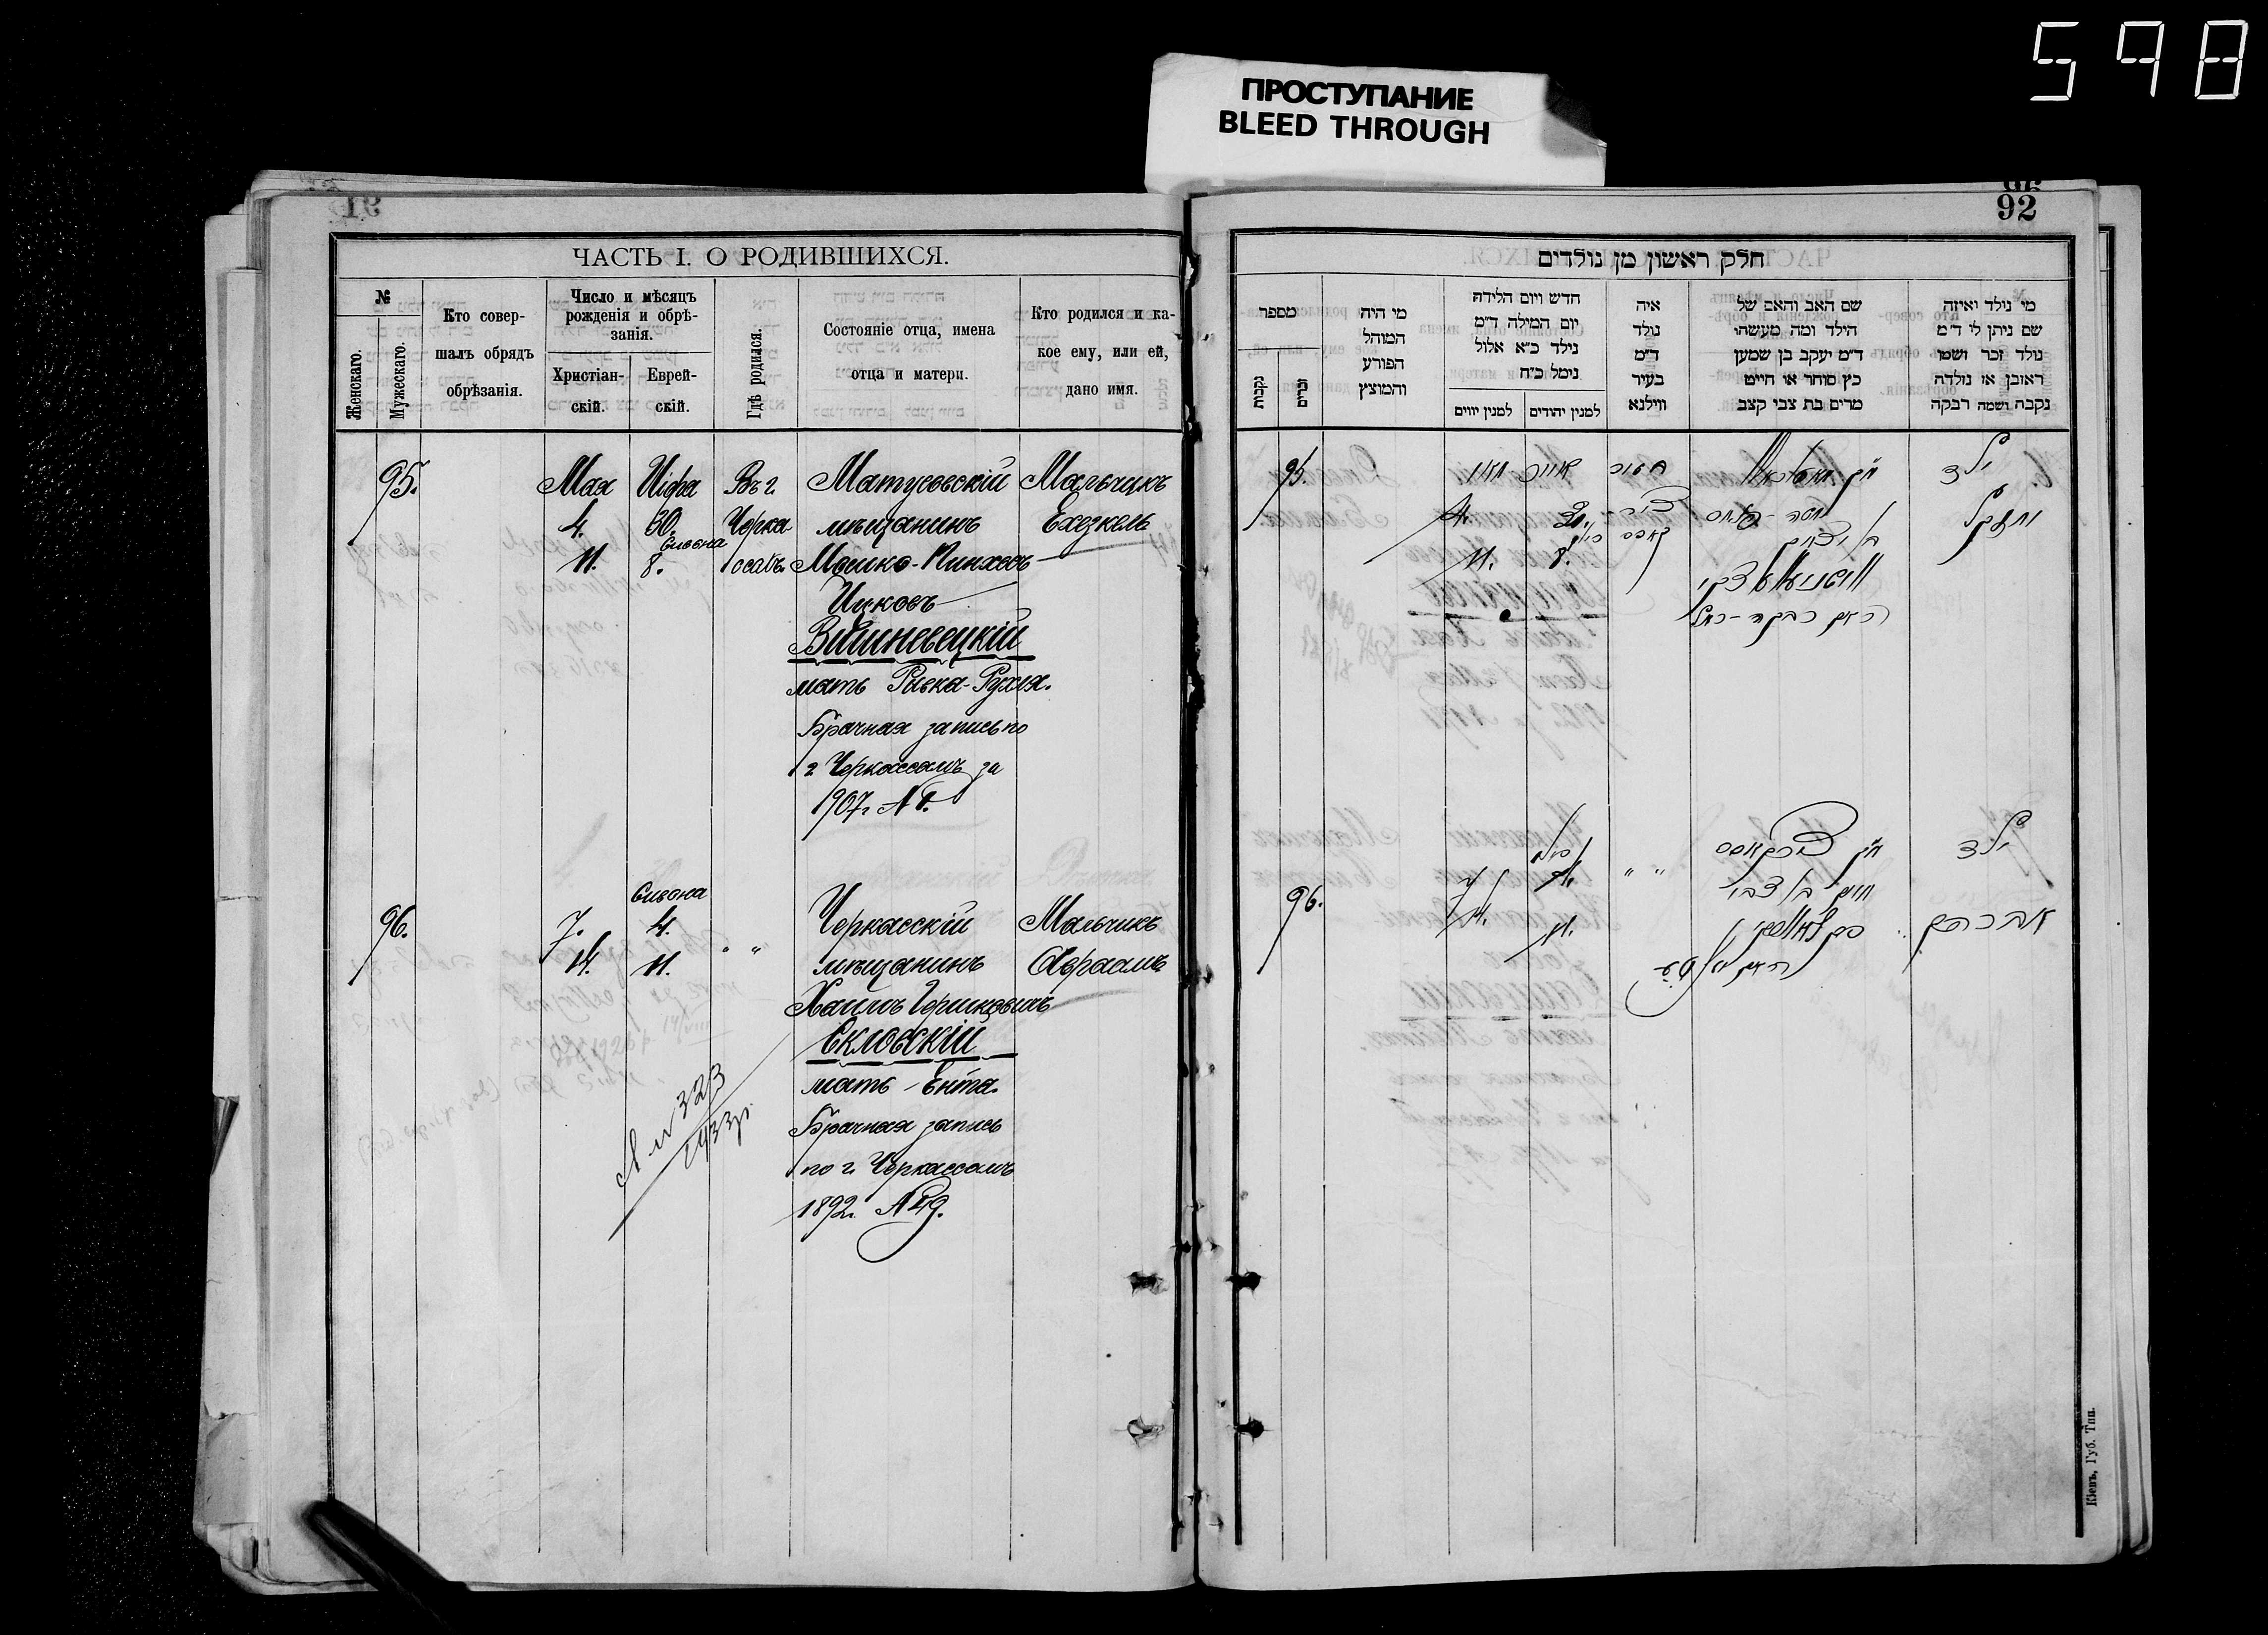 598
ПРОСТУПАНИЕ
BLEED THROUGH
92
ЧАСТЬ I. О РОДИВШИХСЯ.
№
Женскаго.
Мужескаго.
Кто совер-
шалъ обрядъ
обрѣзанія.
Число и мѣсяцъ
рожденія и обрѣ-
занія.
Христіан-
скій.
Еврей-
скій.
Гдѣ родился.
Состояніе отца, имена
отца и матери.
Кто родился и ка-
кое ему, или ей,
дано имя.
95.
Мая
4.
11.
Иіфа
30.
Сивона
8.
Въ г.
Черка-
ссахъ.
Матусовскій
мѣщанинъ
Мошко-Пинхосъ
Ицковъ
Вишневецкій
мать Рывка-Рухля.
Брачная запись по
г Черкассамъ за
1907г №1.
Мальчикъ
Ехезкель
96.
7.
14.
Сивона
4.
11.
" "
Черкасскій
мѣщанинъ
Хаимъ Гершковичъ
Скловскій
мать Ента.
Брачная запись
по г. Черкассамъ
1892г. №49.
Мальчикъ
Авраамъ
חלק ראשון מן נולדים
מספר
נקבות
זכרים
מי היה
המוהל
הפורע
והמוצץ
חדש ויום הלידה
יום המילה ד״מ
נילד כ״א אלול
נימל כ״ח
למנין יווים
למנין יהודים
איה
נולד
ד״מ
בעיר
ווילנא
שם האב והאם של
הילד ומה מעשהו
ד״מ יעקב בן שמעון
כץ סוחר או חייט
מרים בת צבי קצב
מי נילד ואיזה
שם ניתן לי ד״מ
נולד זכר ושמו
ראובן או נולדה
נקבה ושמה רבקה
95.
4.
11.
8.
ילד
יחזקל
האם רבקה-רחל
96.
7
14.
סיון
4.
11.
" "
חיים בן צבי
ילד
אברהם
Кіевъ, Губ. Тип.